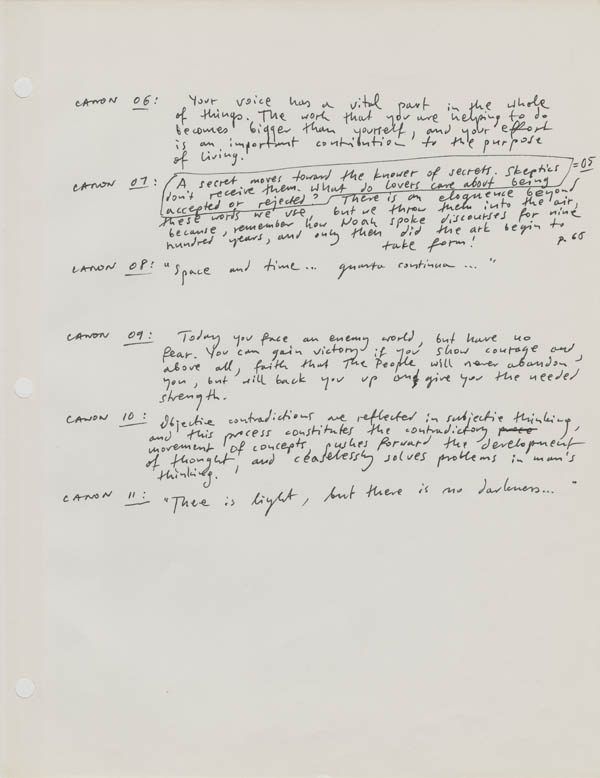 CANON 06: Your voice has a vital part in the whole
of things. The work that you are helping to do
becomes bigger than yourself, and your effort
is an important contribution to the purpose
of living.
CANON 07: A secret moves toward the knower of secrets. Skeptics =05
don't receive them. What do lovers care about being
accepted or rejected? There is an eloquence beyond
these words we use, but we throw them into the air,
because, remember how Noah spoke discourses for nine
hundred years, and only then did the ark begin to
take form! p. 65
CANON 08: "Space and time... quarta continua..."
CANON 09: Today you face an enemy world, but have no
fear. You can gain victory if you show courage and
above all, faith that The People will never abandon
you, but will back you up and give you the needed
strength.
CANON 10: Objective contradictions are reflected in subjective thinking,
and this process constitutes the contradictory
movement of concepts, pushes forward the development
of thought, and ceaselessly solves problems in man's
thinking.
CANON 11: "There is light, but there is no darkness..."